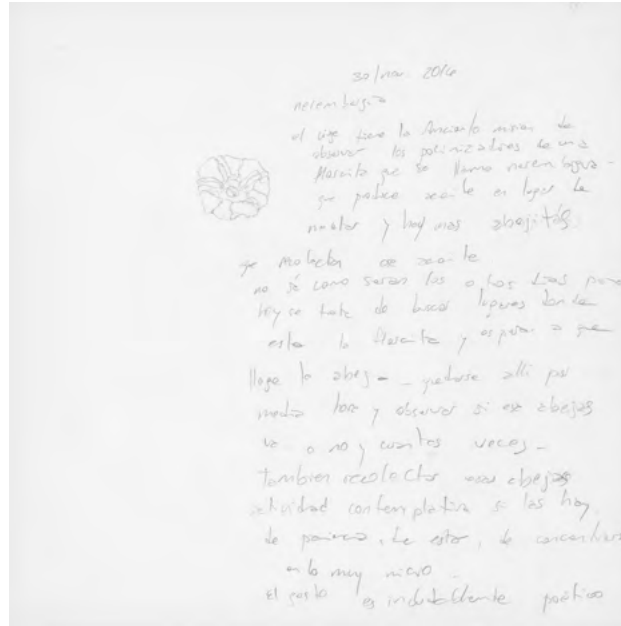 30/nov. 2014
nerembergia
el viaje tiene la fascinante mision de
observar los polinizadores de una
florcita que se llama nerembergia -
que produce aceite en lugar de
nectar y hay unas abejitas
que recolectan ese aceite
no sé como seran los otros dias pero
hoy se trata de buscar lugares donde
esta la florcita y esperar a que
llegue la abeja - quedarse alli por
media hora y observar si esa abejas
va o no y cuantas veces -
tambien recolectar esas abejas
actividad contemplativa si las hay
de paciencia, de estar, de concentrarse
en lo muy micro -
El gesto es indudablemente poético